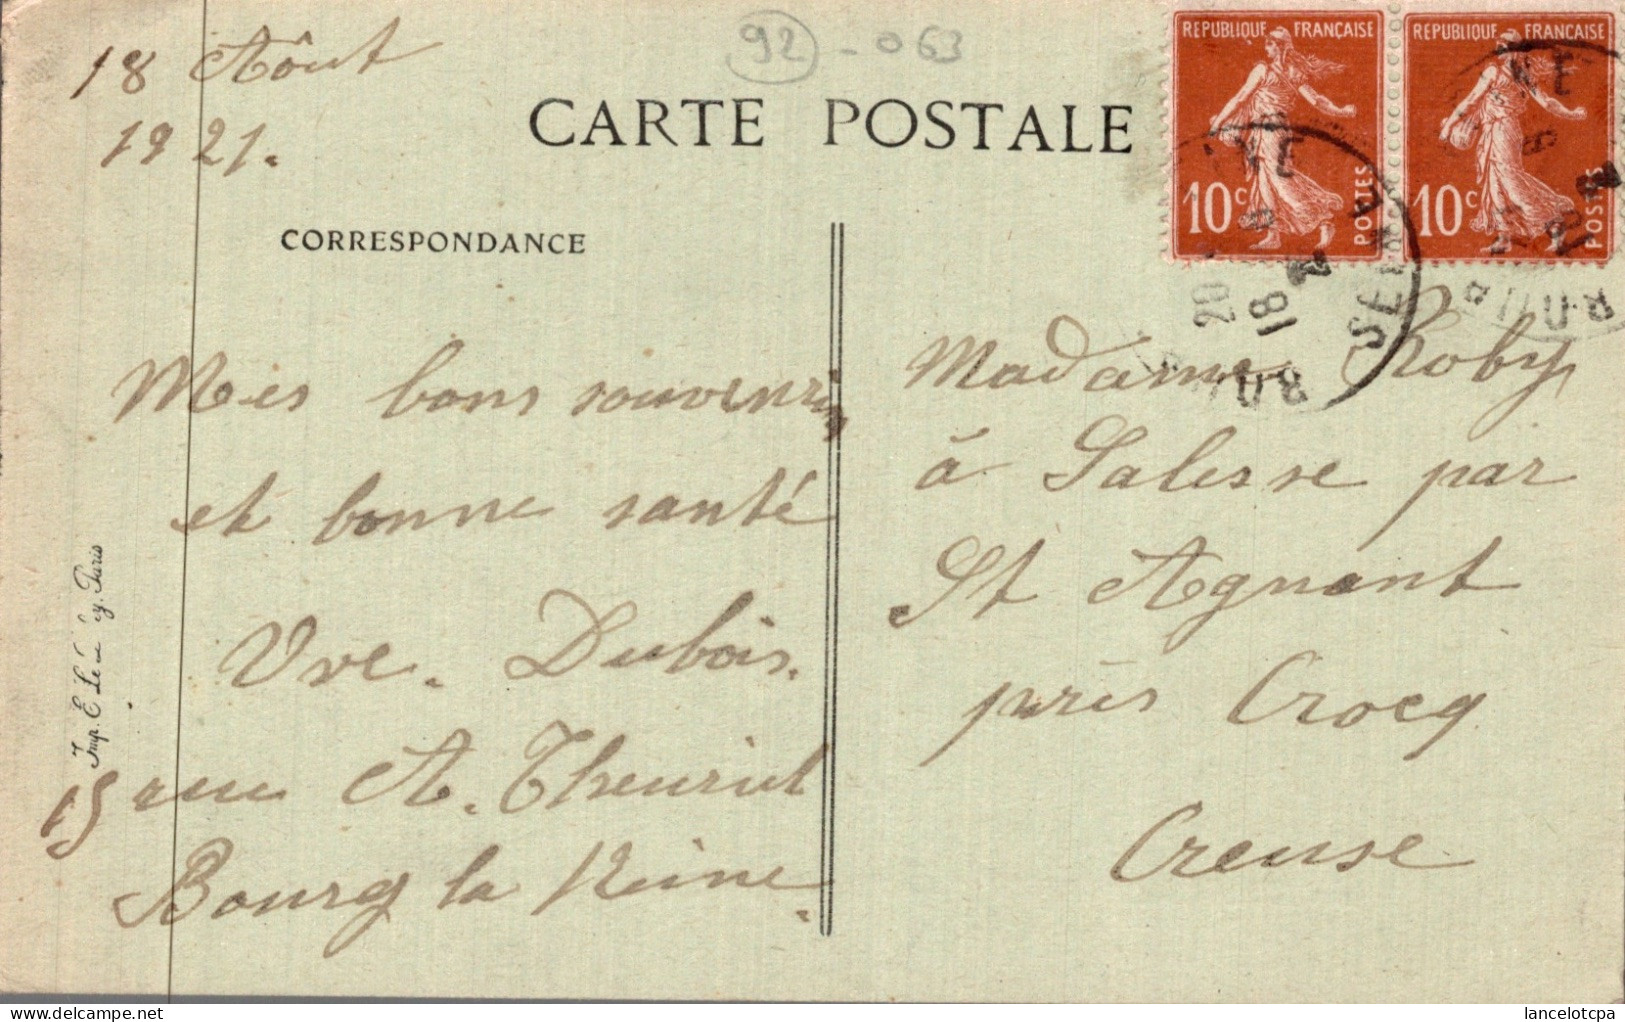 92 - 063
18 Aôut
1921.
CARTE POSTALE
REPUBLIQUE FRANÇAISE
10c POSTES
REPUBLIQUE FRANÇAISE
10c POSTES
SEINE
20
18
CORRESPONDANCE
Mes bons souvenirs
et bonne santé
Vve. Dubois.
15 rue A. Theuriet
Bourg la Reine.
Madame Roby
à Salesse par
St Agnant
près Crocq
Creuse
Imp. E. Paris
lancelotcpa